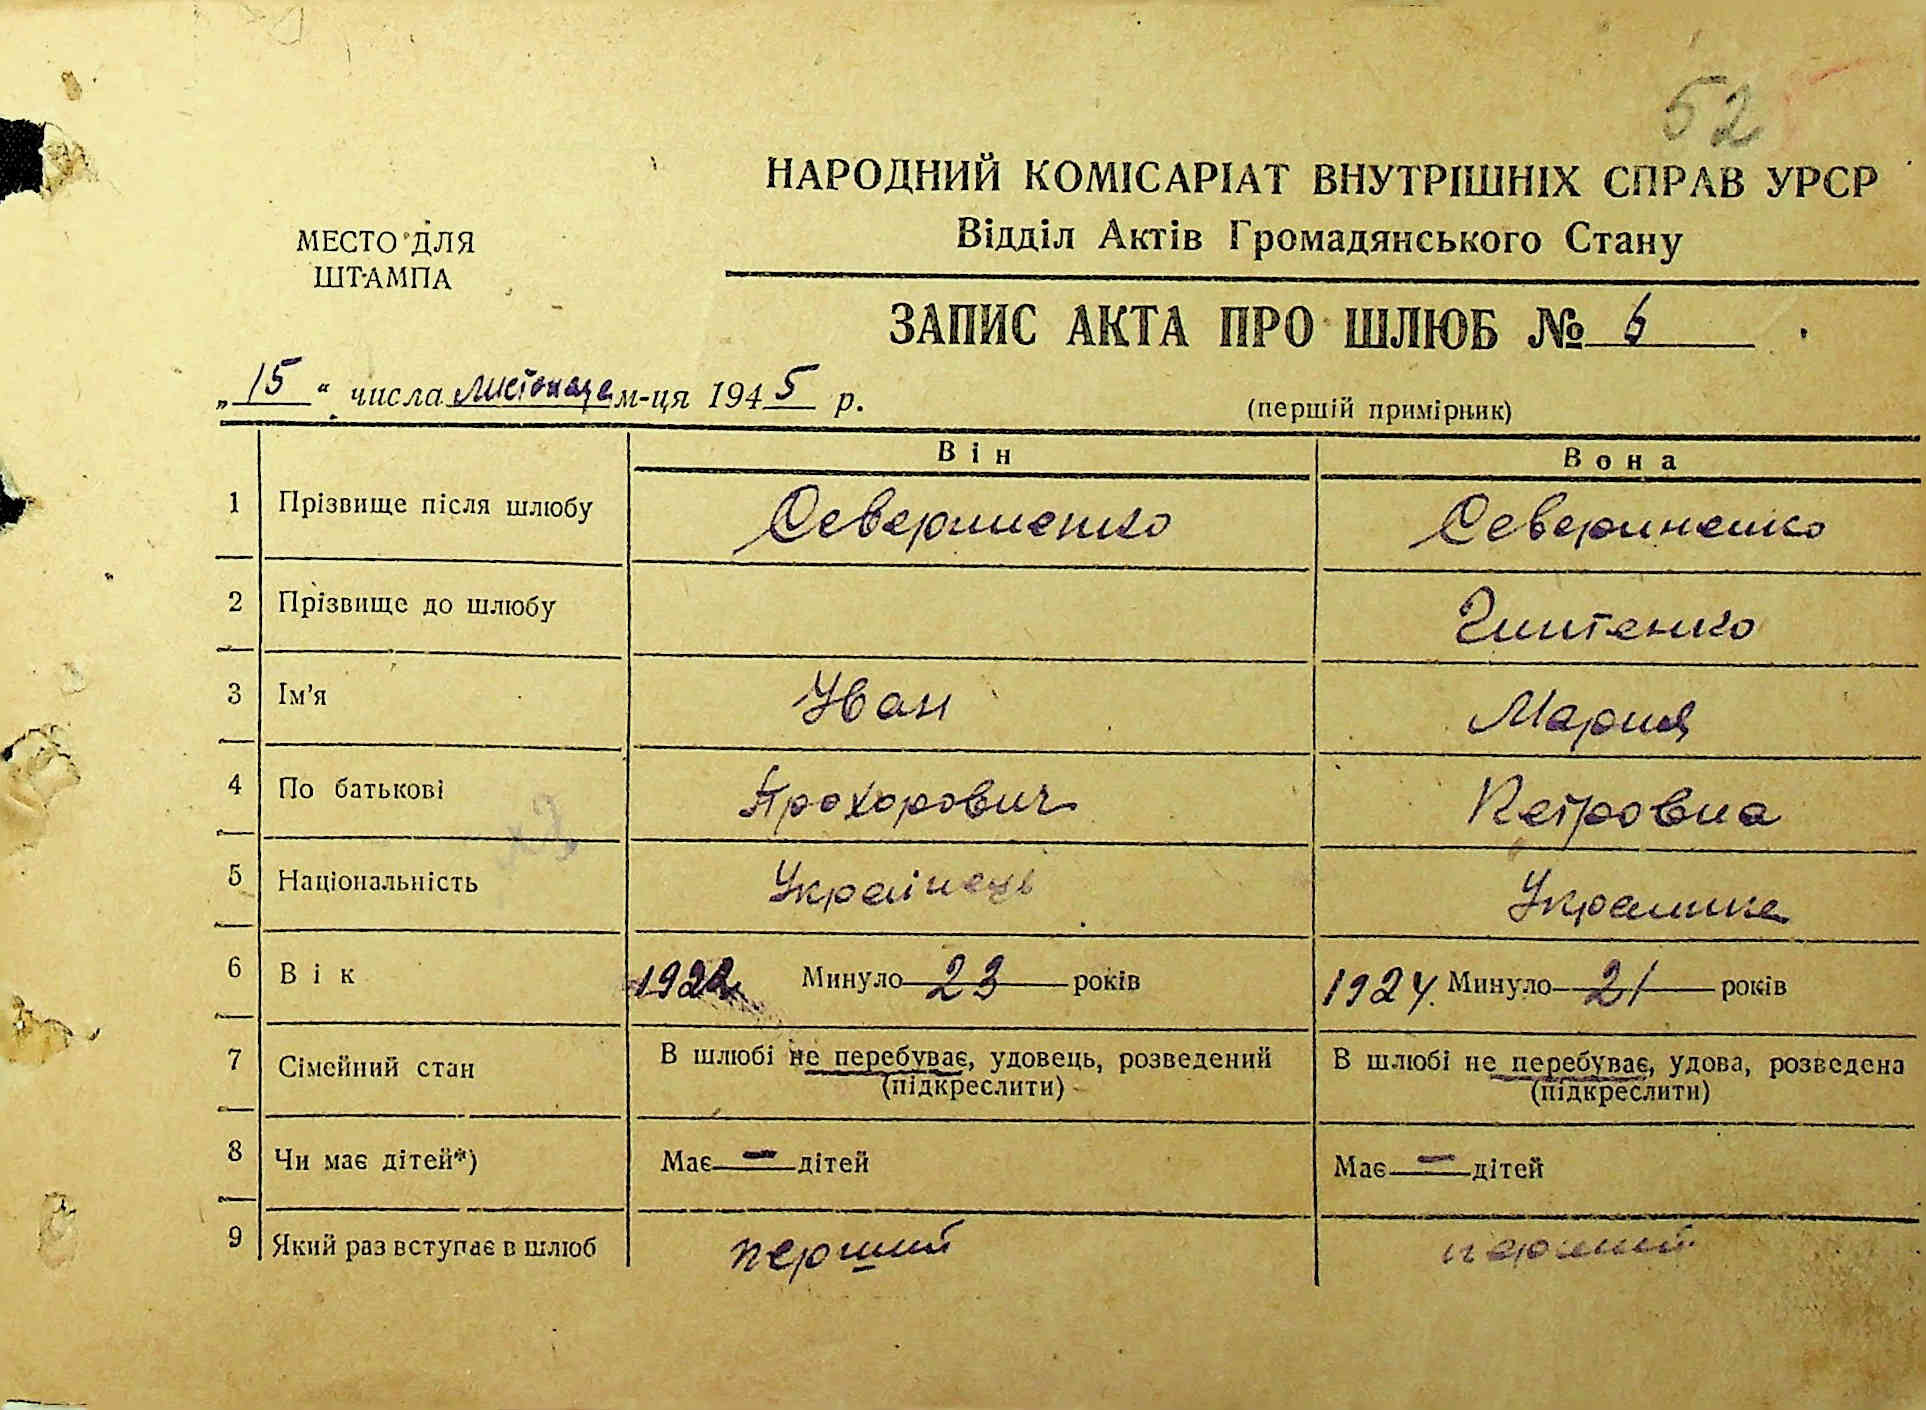 52
НАРОДНИЙ КОМІСАРІАТ ВНУТРІШНІХ СПРАВ УРСР
Відділ Актів Громадянського Стану
МЕСТО ДЛЯ
ШТАМПА
ЗАПИС АКТА ПРО ШЛЮБ № 6
„15“ числа листопада м-ця 1945 р.
(першій примірник)
Він Вона
1 Прізвище після шлюбу Севериненко Севериненко
2 Прізвище до шлюбу
3 Ім'я Иван Мария
4 По батькові Прохорович Петровна
5 Національність Українець Украинка
6 Вік 1922 Минуло 23 років 1924. Минуло 21 років
7 Сімейний стан В шлюбі не перебуває, удовець, розведений В шлюбі не перебуває, удова, розведена
(підкреслити) (підкреслити)
8 Чи має дітей*) Має — дітей Має — дітей
9 Який раз вступає в шлюб перший перший